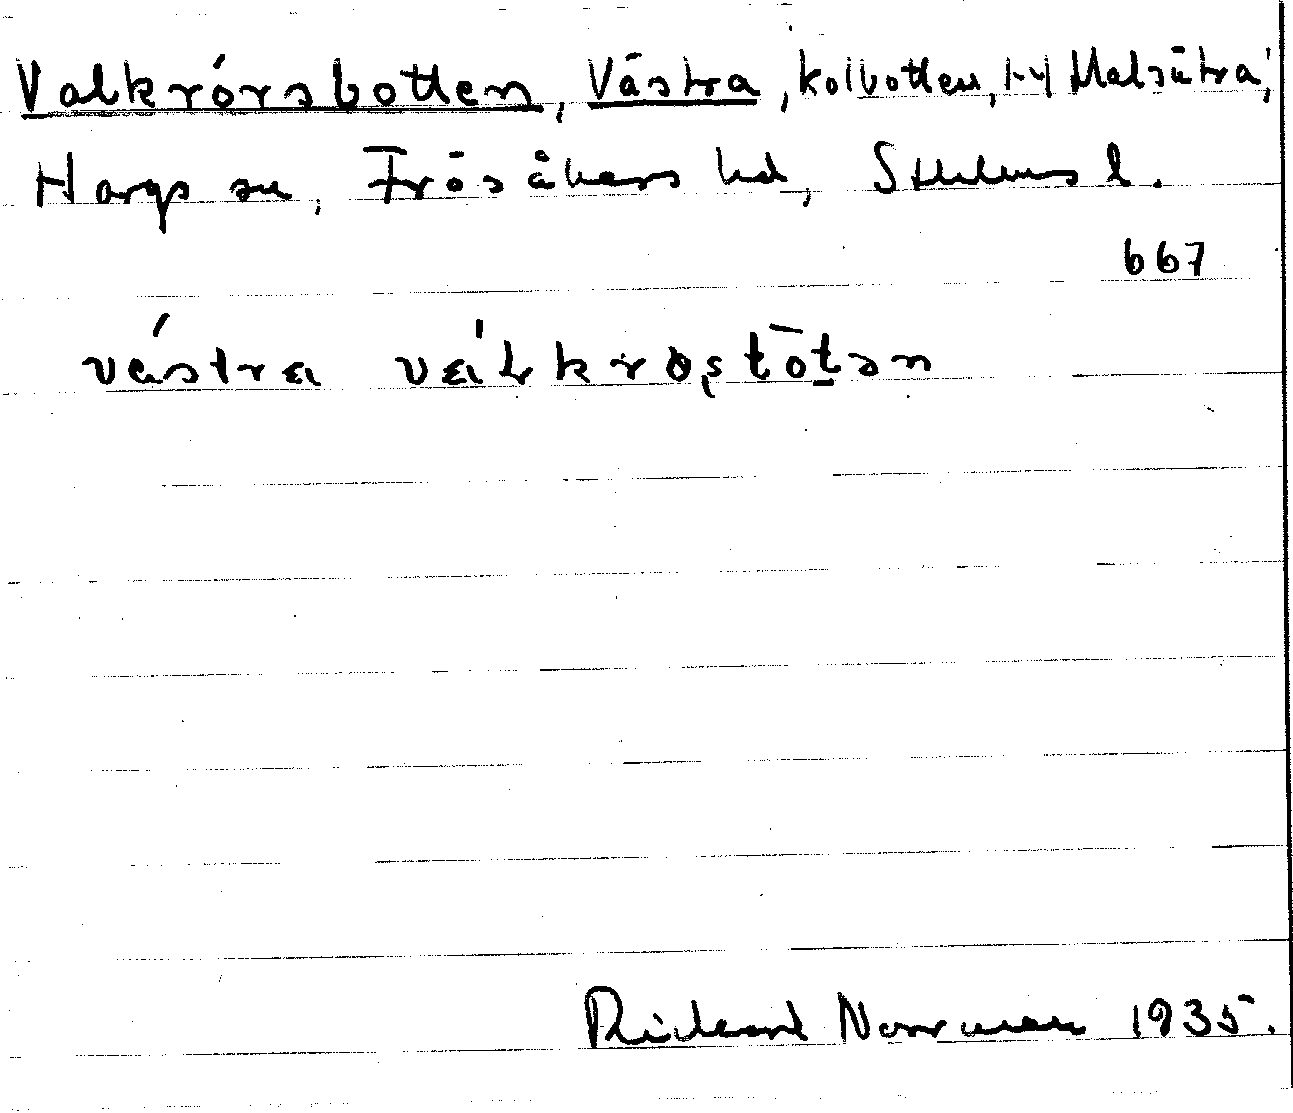 Valkrörsbotten, Västra, kolbotten, 1-4 Malsätra,
Hargs sn, Frösåkers hd, Sthlms l.
667
västra
Richard Norrman 1935.